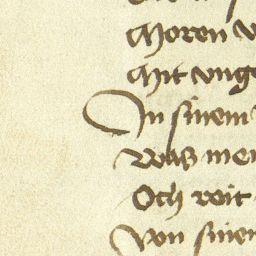 Moren v
Mit vnge
In sinem
Was men
Och reit
Von sinen